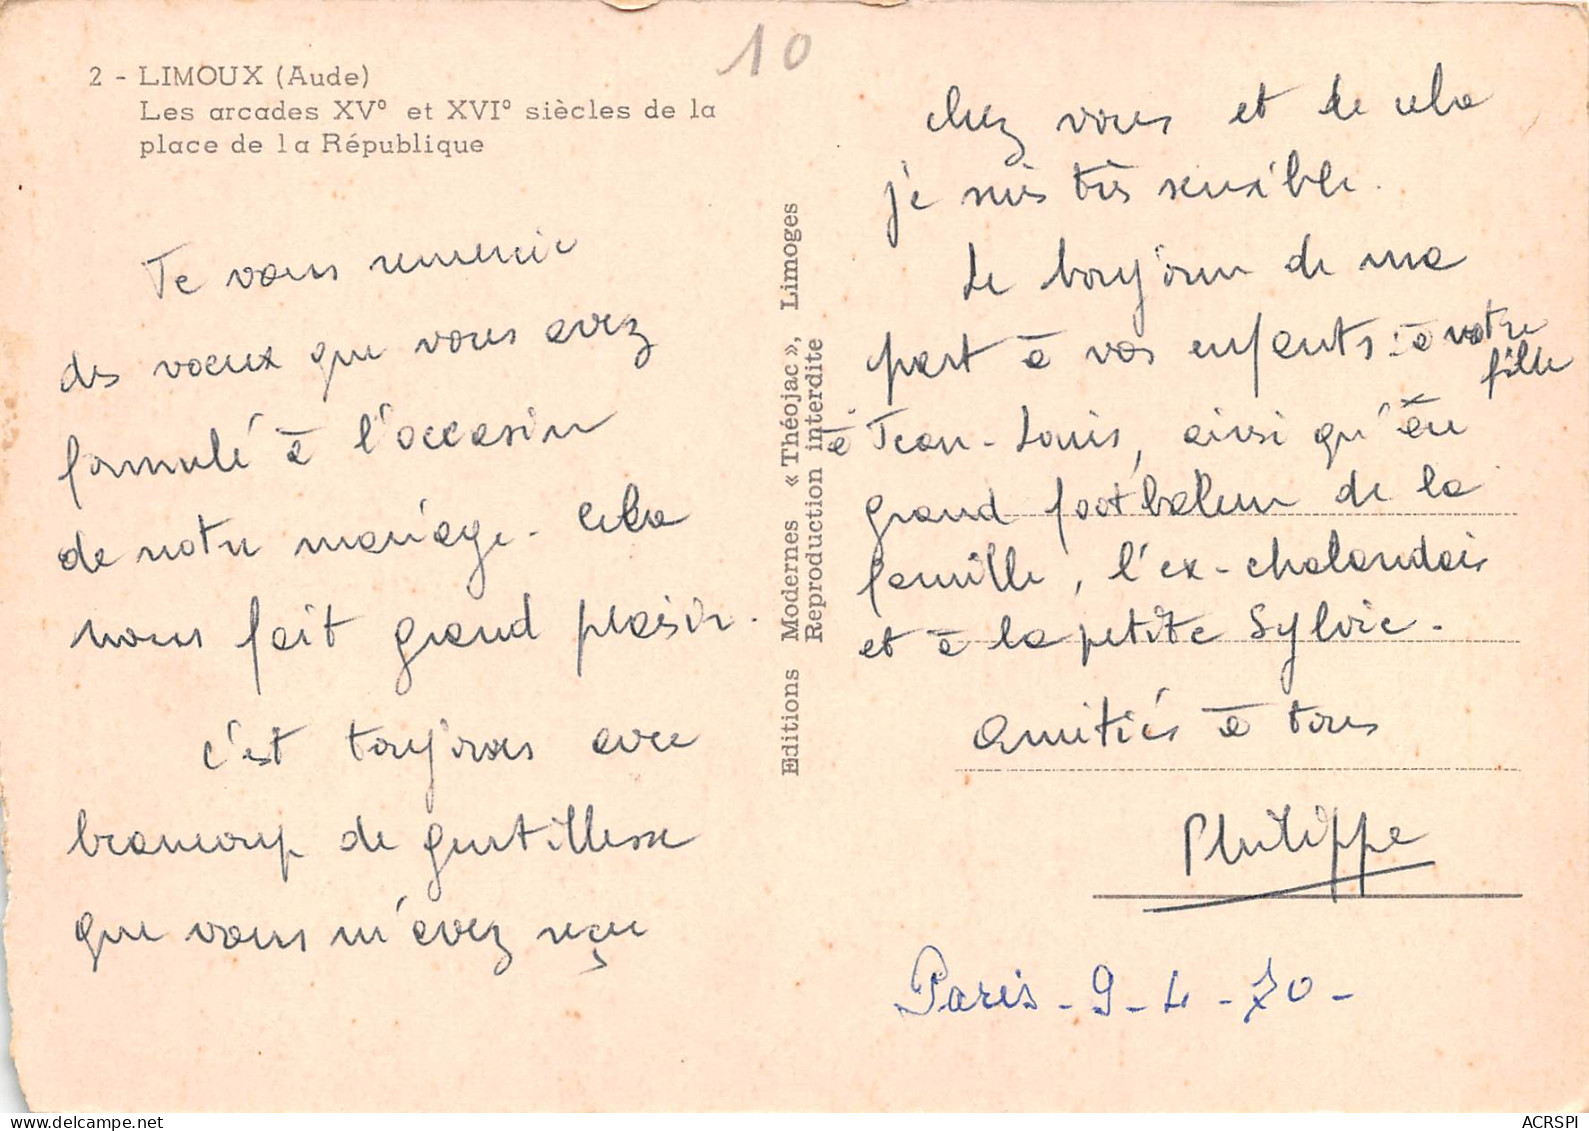 10
2 - LIMOUX (Aude)
Les arcades XV° et XVI° siècles de la
place de la République
Je vous remercie
des voeux que vous avez
formulé à l'occasion
de notre mariage. Cela
nous fait grand plaisir.
C'est toujours avec
beaucoup de gentillesse
que vous m'avez reçu
Editions Modernes « Théojac », Limoges
Reproduction interdite
chez vous et de cela
je suis très sensible.
Le bonjour de ma
part à vos enfants : à votre
fille
à Jean-Louis, ainsi qu'au
grand footballeur de la
famille, l'ex-chalandais
et à la petite Sylvie.
Amitiés à tous
Philippe
Paris - 9 - 4 - 70 -
delcampe.net
ACRSPI